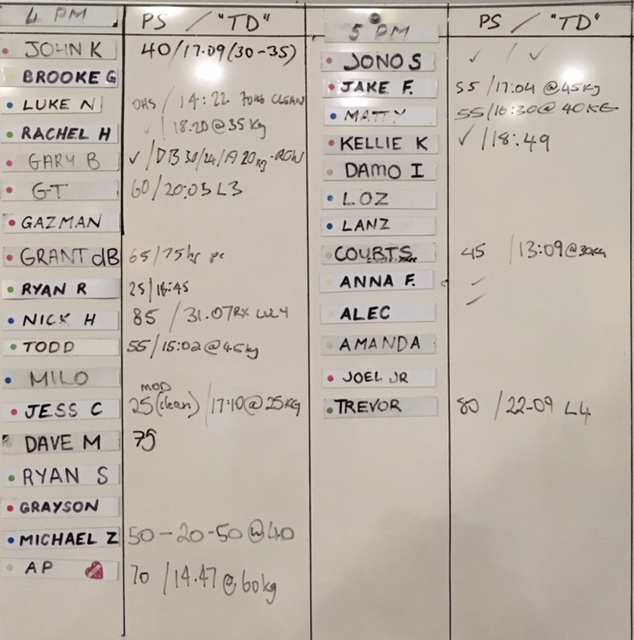 4 PM PS / "TD"
JOHN K 40/17.09 (30-35)
BROOKE G
LUKE N OHS / 14:22 70KG CLEAN
RACHEL H ✓ / 18.20 @ 35kg
GARY B ✓ / DB 30/24/19 20kg ROW
GT 60/20:05 L3
GAZMAN
GRANT dB 65/75
RYAN R 25/16:45
NICK H 85 / 31.07 RX
TODD 55/15:02 @ 45kg
MILO
MOD
JESS C 25 (clean) / 17:10 @ 25KG
DAVE M 75
RYAN S
GRAYSON
MICHAEL Z 50-20-50 @ 40
AP 70 / 14.47 @ 60kg
5 PM PS / "TD"
JONO S ✓ / ✓
JAKE F. 55 / 17:04 @ 45kg
MATTY 55/16:30 @ 40KG
KELLIE K ✓ / 18:49
DAMO I
LOZ
LANZ
COURTS 45 / 13:09 @ 30kg
ANNA F.
ALEC
AMANDA
JOEL JR
TREVOR 80 / 22-09 L4